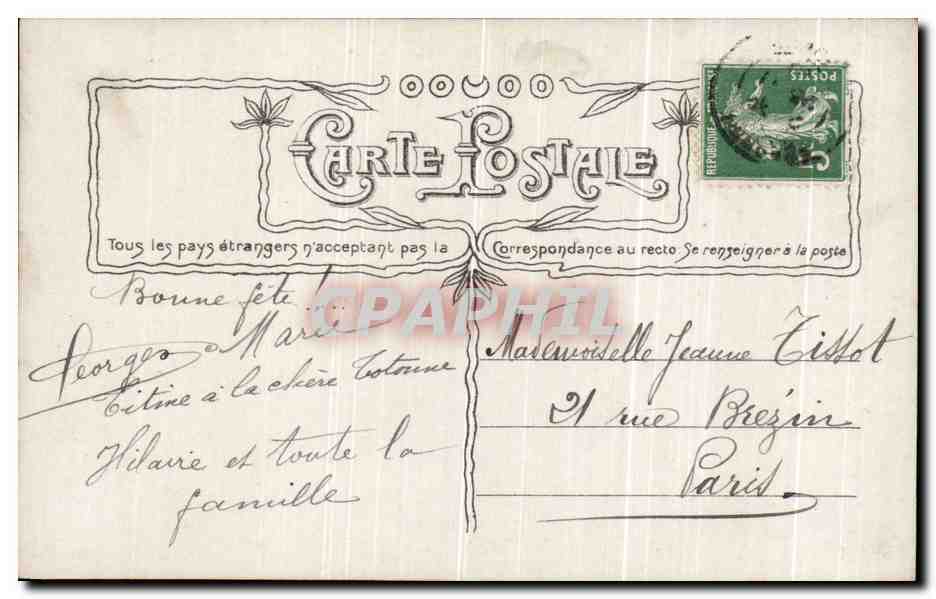 CARTE POSTALE
Tous les pays étrangers n'acceptant pas la Correspondance au recto. Se renseigner à la poste
RÉPUBLIQUE
POSTES
5
Bonne fête !...
Georges Marie
Titine à la chère Totonne
Hilaire et toute la
famille
Mademoiselle Jeanne Tissot
21 rue Brézin
Paris
CPAPHIL